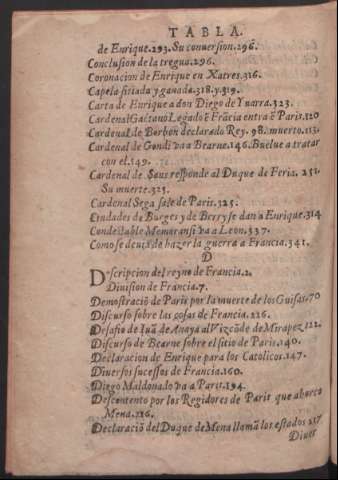 TABLA.
de Enrique.293. Su conuersion.296.
Conclusion de la tregua.296.
Coronacion de Enrique en Xatres.316.
Capela sitiada y ganada.318.y.319.
Carta de Enrique a don Diego de Yuarra.323.
Cardenal Gaetano Legado ē Frācia entra ē Paris.120
Cardenal de Borbon declarado Rey.98. muerto.113.
Cardenal de Gondi va a Bearne.146. Buelue a tratar
con el.149.
Cardenal de Sans responde al Duque de Feria. 251.
Su muerte.323.
Cardenal Sega sale de Paris.325.
Ciudades de Burges y de Berry se dan a Enrique.314
Condestable Memoransi va a Leon.337.
Como se deuia de hazer la guerra a Francia.341.
D
Descripcion del reyno de Francia.2.
Diuision de Francia.7.
Demostraciō de Paris por la muerte de los Guisas.70
Discurso sobre las cosas de Francia.126.
Desafio de Iuā de Anaya al Vizcōde de Mirapez.122.
Discurso de Bearne sobre el sitio de Paris.140.
Declaracion de Enrique para los Catolicos.147.
Diuersos sucessos de Francia.160.
Diego Maldonado va a Paris.194.
Descontento por los Regidores de Paris que ahorco
Mena.226.
Declaraciō del Duque de Mena llamā los estados 217
Diuer